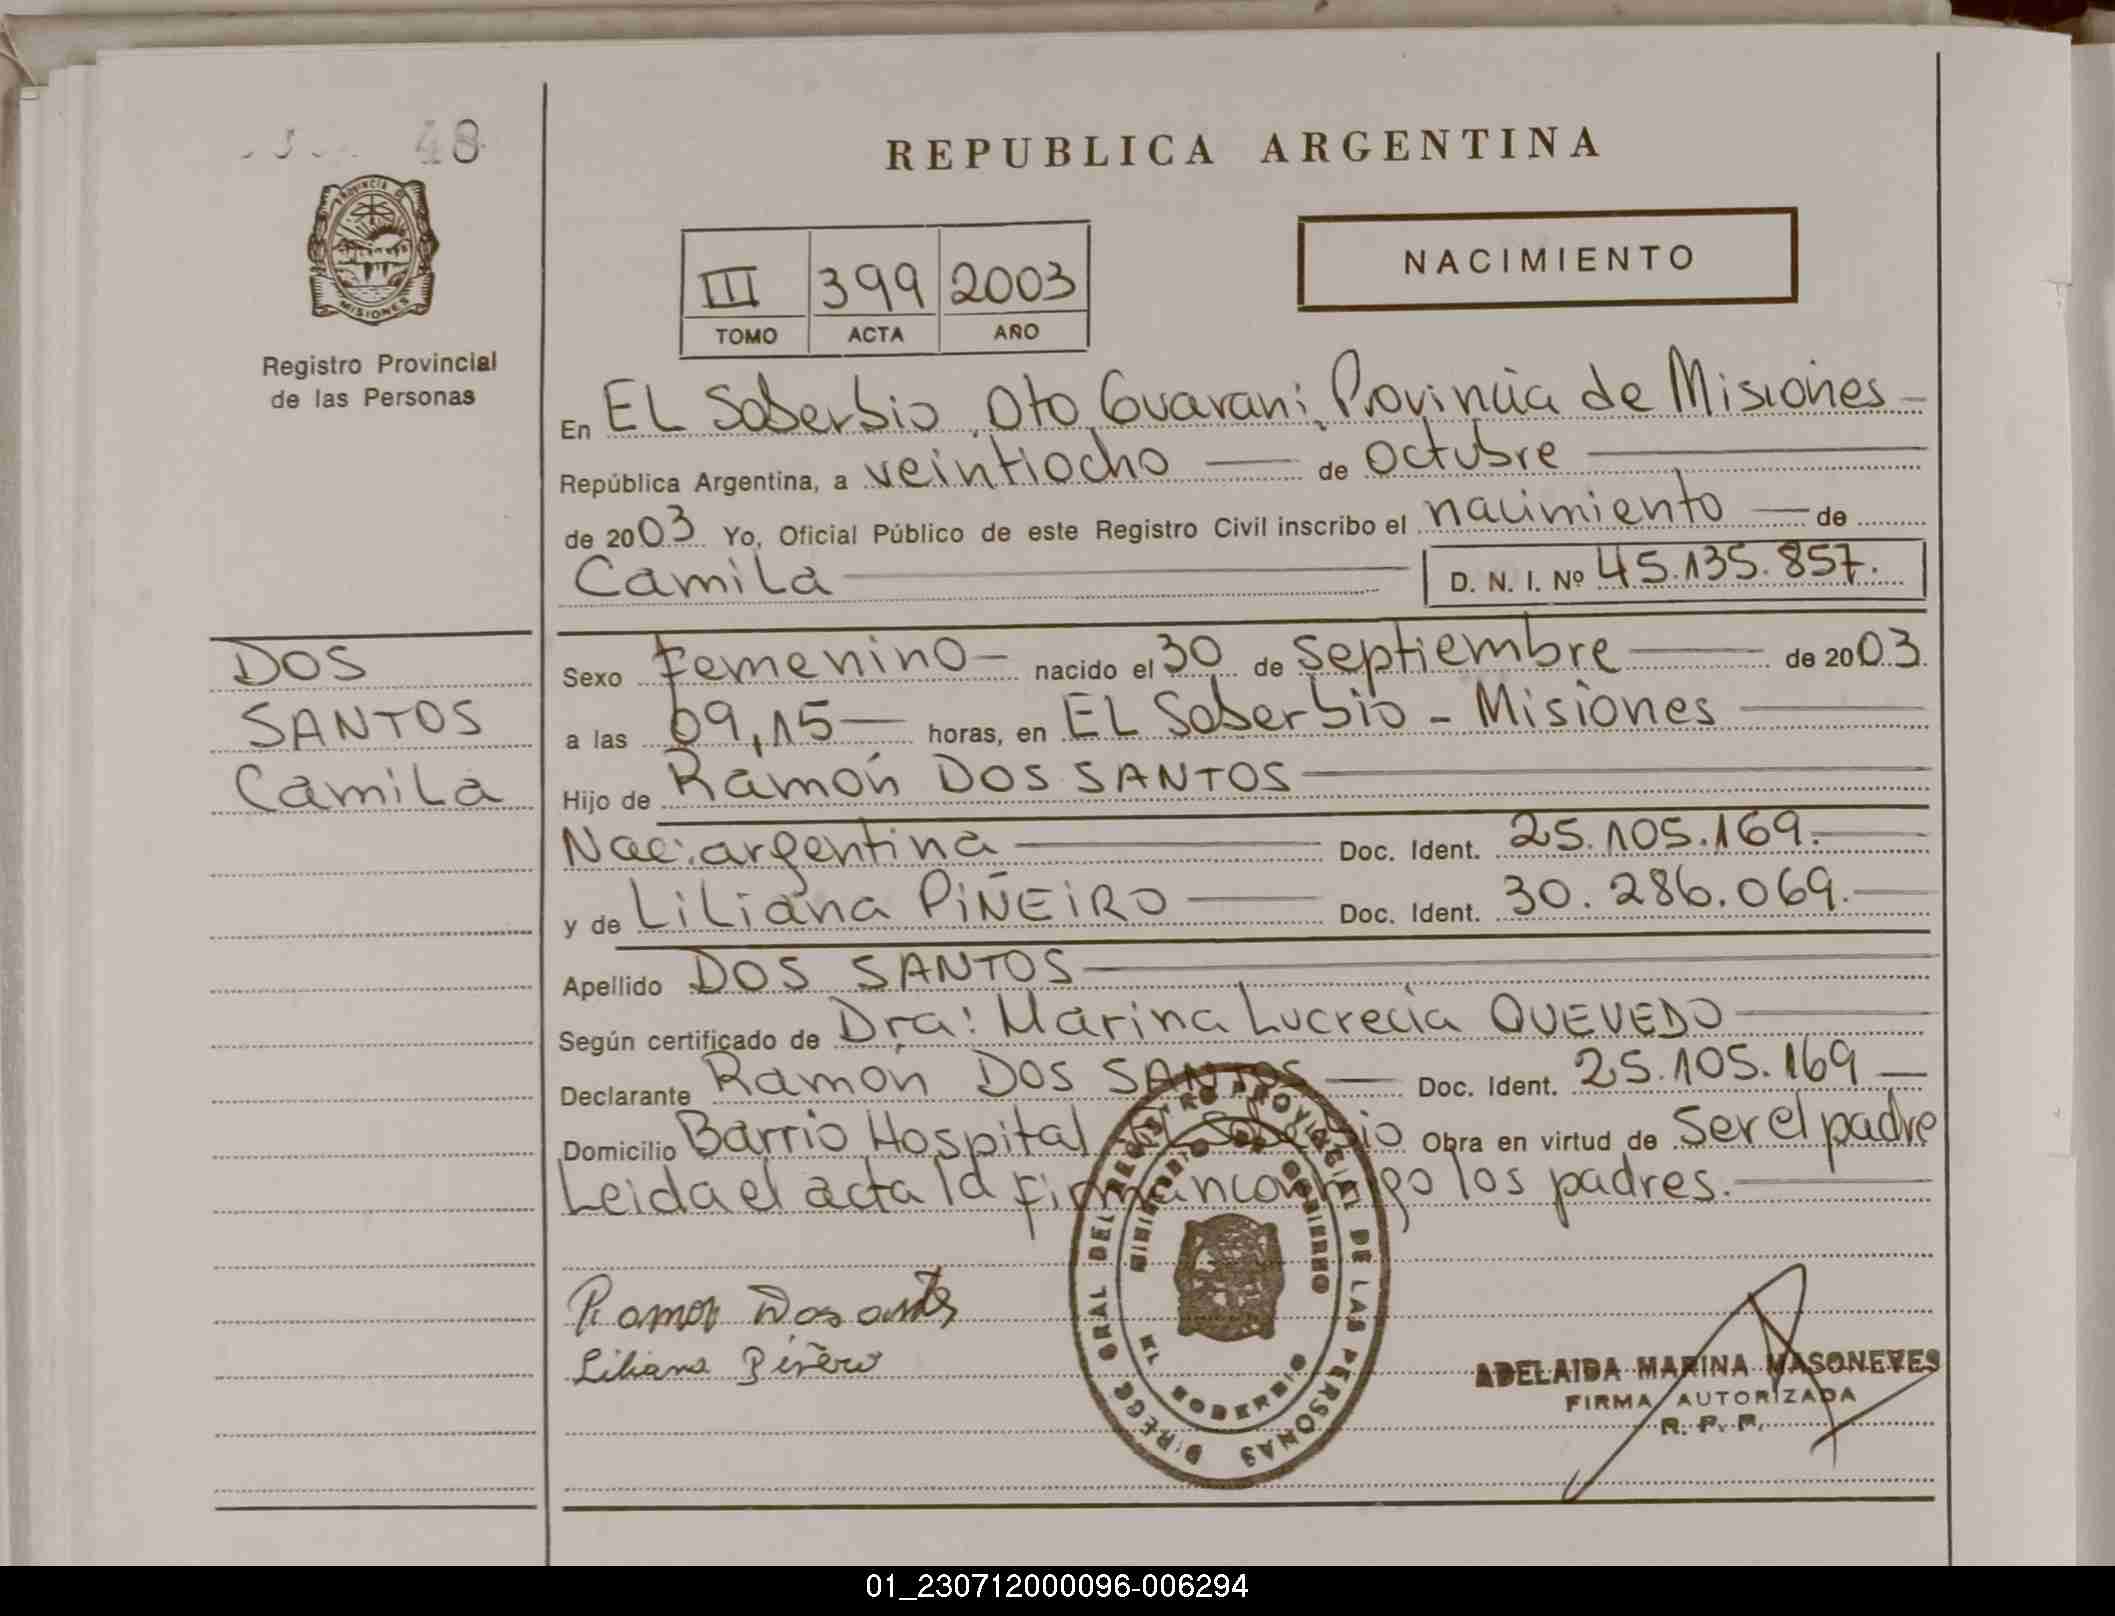 48
REPUBLICA ARGENTINA
PROVINCIA DE
MISIONES
III 399 2003
TOMO ACTA AÑO
NACIMIENTO
Registro Provincial
de las Personas
En EL Soberbio, Dto Guaraní, Provincia de Misiones
República Argentina, a veintiocho de octubre
de 2003 Yo, Oficial Público de este Registro Civil inscribo el nacimiento de
Camila D. N. I. Nº 45.135.857.
DOS
SANTOS
Camila
Sexo Femenino nacido el 30 de Septiembre de 2003
a las 09,15 horas, en EL Soberbio - Misiones
Hijo de Ramón DOS SANTOS
Nac: argentina Doc. Ident. 25.105.169.
y de Liliana PIÑEIRO Doc. Ident. 30.286.069.
Apellido DOS SANTOS
Según certificado de Dra: Marina Lucrecia QUEVEDO
Declarante Ramón DOS SANTOS Doc. Ident. 25.105.169
Domicilio Barrio Hospital El Soberbio Obra en virtud de ser el padre
Leida el acta la firman conmigo los padres.
Ramon Dos
Liliana Piñero
DIRECC GRAL DEL REGISTRO PROVINCIAL DE LAS PERSONAS
MINISTERIO DE GOBIERNO
EL SOBERBIO
ADELAIDA MARINA MASONEVES
FIRMA AUTORIZADA
R. P. P.
01_230712000096-006294